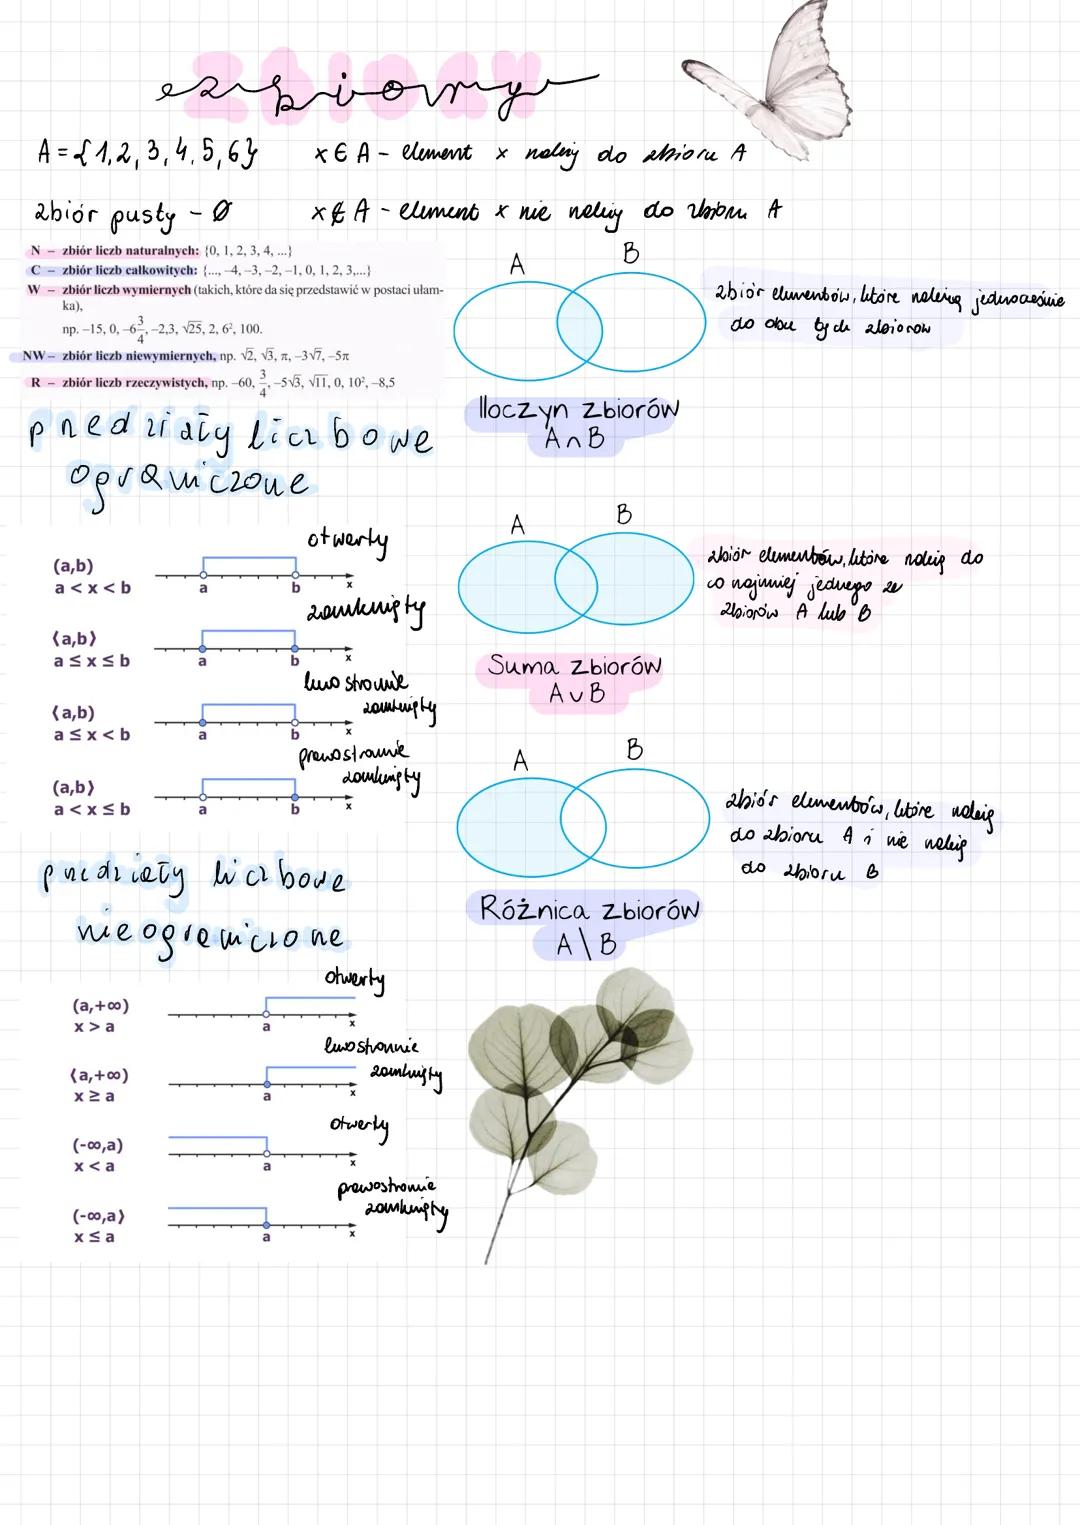 zbiory
A = {1, 2, 3, 4, 5, 6}
x ∈ A - element x należy do zbioru A
zbiór pusty - Ø
x ∉ A - element x nie należy do zbioru A
N – zbiór liczb naturalnych: {0, 1, 2, 3, 4, ...}
C – zbiór liczb całkowitych: {..., –4, –3, –2, –1, 0, 1, 2, 3,...}
W – zbiór liczb wymiernych (takich, które da się przedstawić w postaci ułam-
ka),
np. –15, 0, –6 3/4, –2,3, √25, 2, 6², 100.
NW – zbiór liczb niewymiernych, np. √2, √3, π, –3√7, –5π
R – zbiór liczb rzeczywistych, np. –60, 3/4, –5√3, √11, 0, 10², –8,5
A B
zbiór elementów, które należą jednocześnie
do obu tych zbiorów
Iloczyn zbiorów
A∩B
przedziały liczbowe
ograniczone
otwarty
(a,b)
a < x < b
a b x
zamknięty
⟨a,b⟩
a ≤ x ≤ b
a b x
lewostronnie
zamknięty
⟨a,b)
a ≤ x < b
a b x
prawostronnie
zamknięty
(a,b⟩
a < x ≤ b
a b x
A B
zbiór elementów, które należą do
co najmniej jednego ze
zbiorów A lub B
Suma zbiorów
A∪B
A B
zbiór elementów, które należą
do zbioru A i nie należą
do zbioru B
Różnica zbiorów
A\B
przedziały liczbowe
nieograniczone
otwarty
(a,+∞)
x > a
a x
lewostronnie
zamknięty
⟨a,+∞)
x ≥ a
a x
otwarty
(-∞,a)
x < a
a x
prawostronnie
zamknięty
(-∞,a⟩
x ≤ a
a x